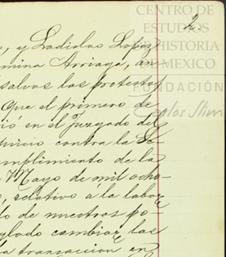 CENTRO DE
ESTUDIOS
DE HISTORIA
DE MEXICO
FUNDACIÓN
Carlos Slim
2.
o, y Ladislao Lopez
mina Arriaga, an
salvas las protestas
Que el primero de
ió en el juzgado del
juicio contra la Se
mplimiento de la
Mayo de mil ocho-
o, relativo á la labor
to de nuestros po-
glado cambiar las
la transaccion en